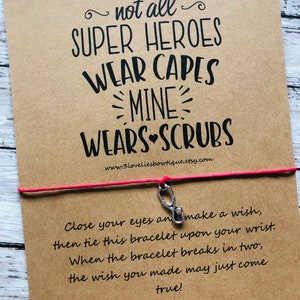 not all
SUPER HEROES
WEAR CAPES
MINE
WEARS♥SCRUBS
www.3loveliesbowtique.etsy.com
Close your eyes and make a wish,
then tie this bracelet upon your wrist.
When the bracelet breaks in two,
the wish you made may just come
true!